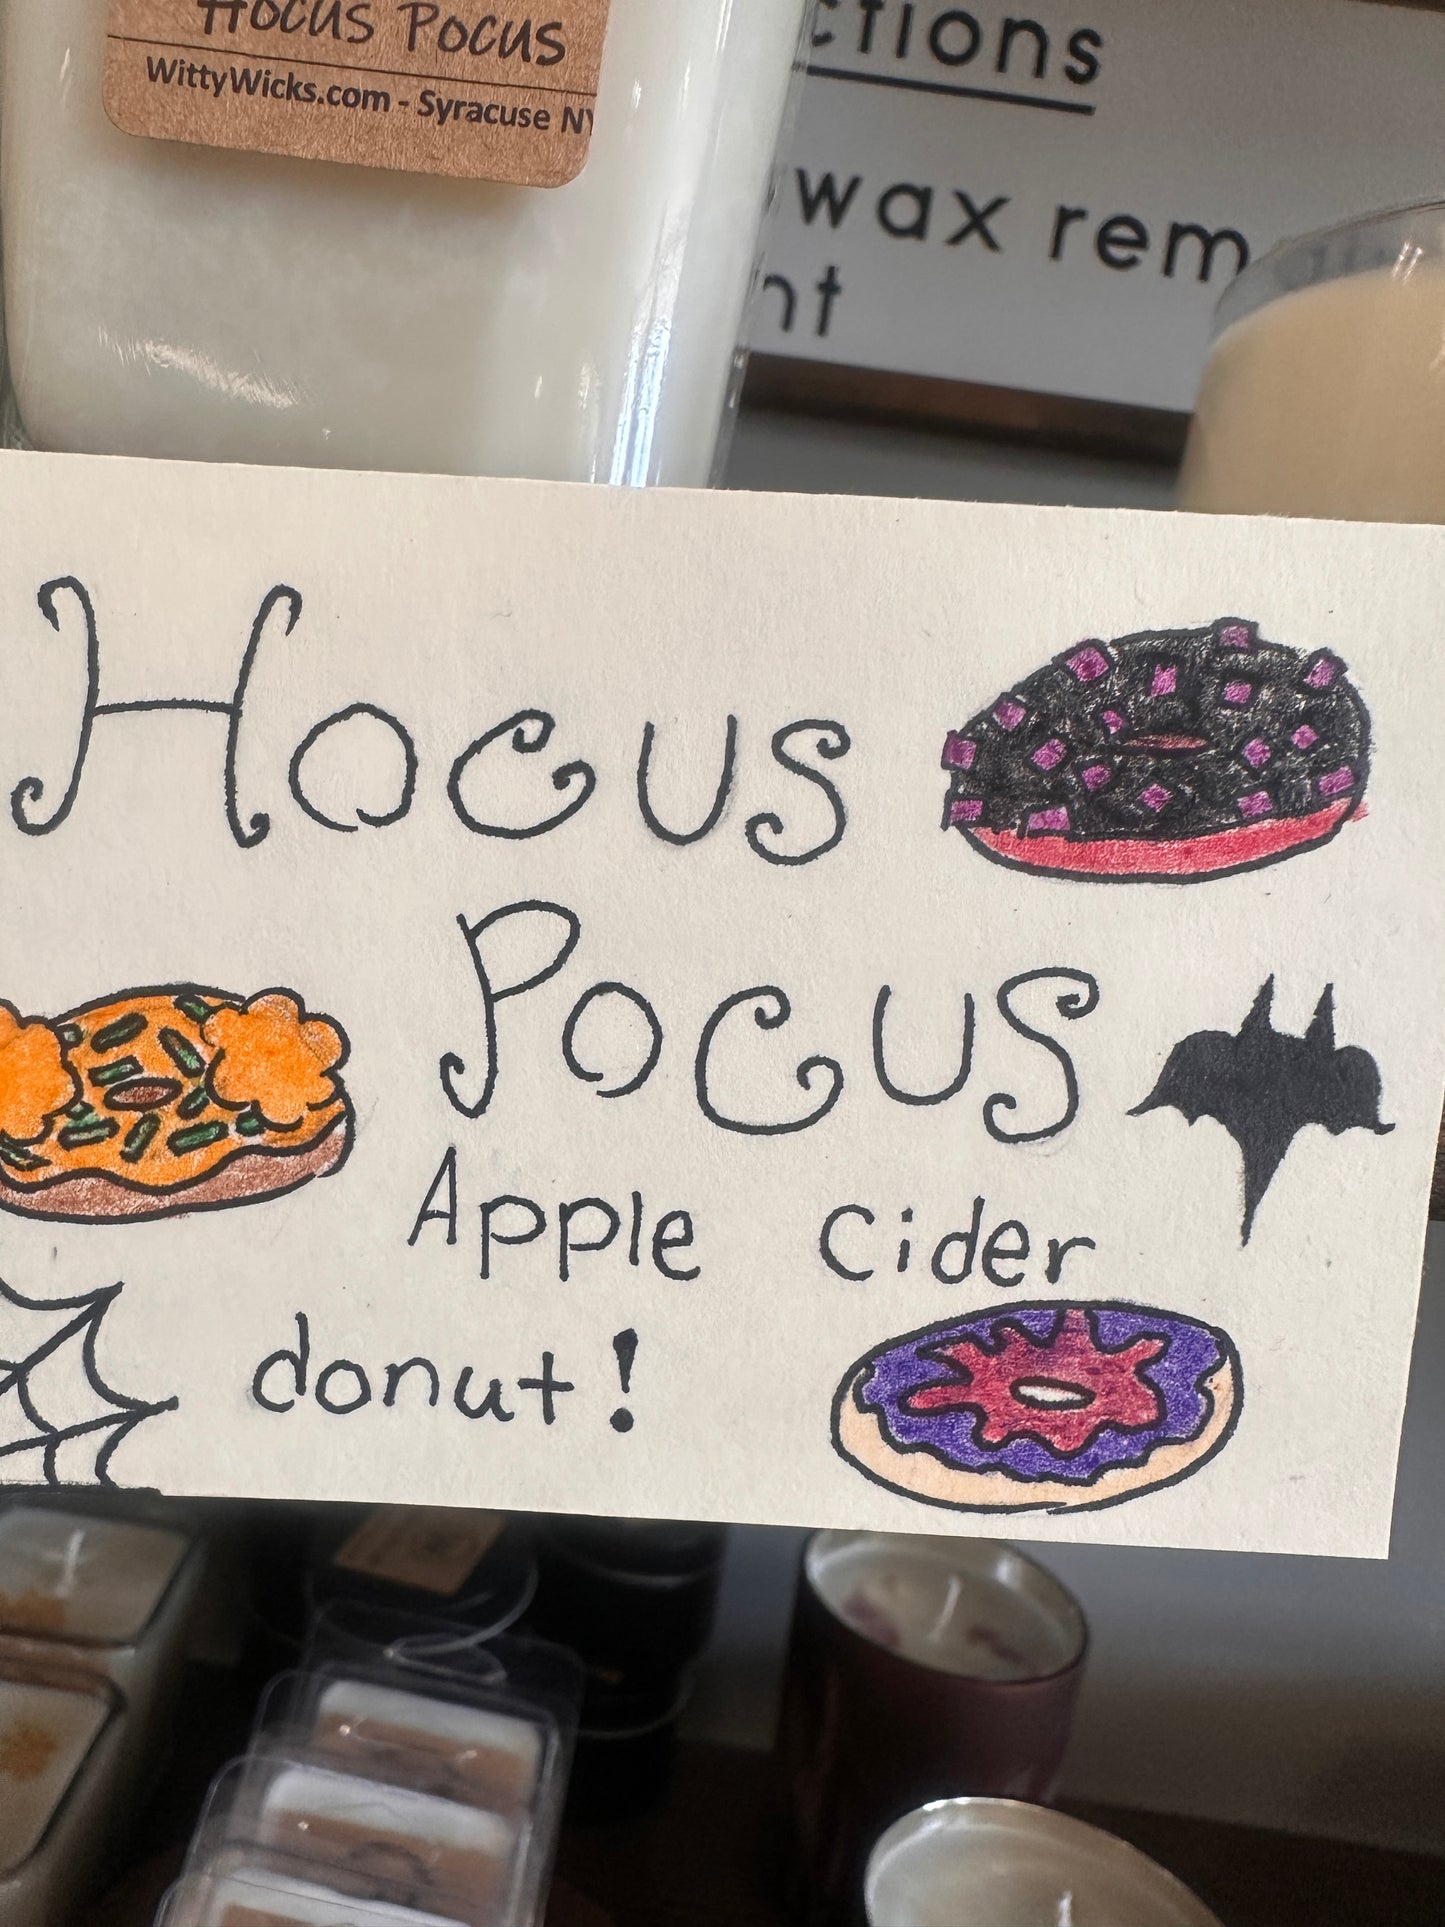 Hocus Pocus
WittyWicks.com - Syracuse NY
ctions
wax rem
nt
Hocus
Pocus
Apple Cider
donut!